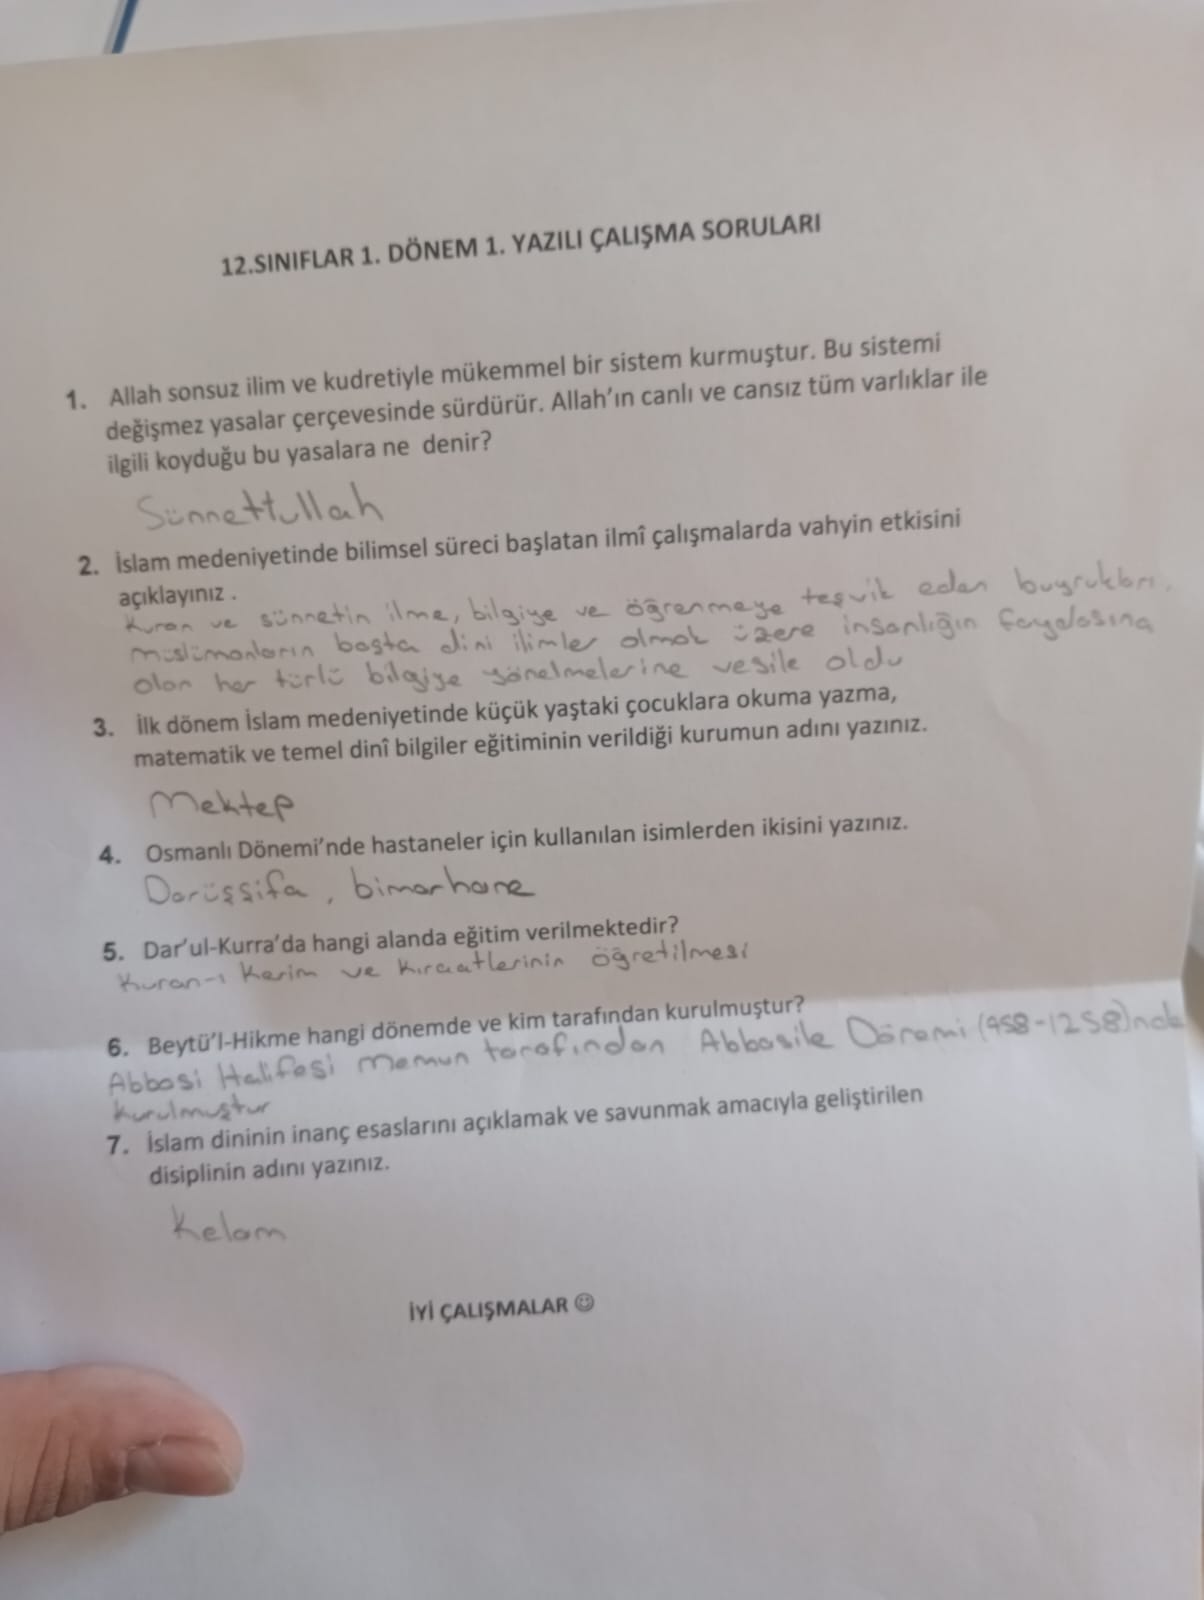 12.SINIFLAR 1. DÖNEM 1. YAZILI ÇALIŞMA SORULARI
1. Allah sonsuz ilim ve kudretiyle mükemmel bir sistem kurmuştur. Bu sistemi
değişmez yasalar çerçevesinde sürdürür. Allah'ın canlı ve cansız tüm varlıklar ile
ilgili koyduğu bu yasalara ne denir?
Sünnettullah
2. İslam medeniyetinde bilimsel süreci başlatan ilmî çalışmalarda vahyin etkisini
açıklayınız .
Kuran ve sünnetin ilme, bilgiye ve öğrenmeye teşvik eden buyrukları,
müslümanların başta dini ilimler olmak üzere insanlığın faydasına
olan her türlü bilgiye yönelmelerine vesile oldu
3. İlk dönem İslam medeniyetinde küçük yaştaki çocuklara okuma yazma,
matematik ve temel dinî bilgiler eğitiminin verildiği kurumun adını yazınız.
Mektep
4. Osmanlı Dönemi'nde hastaneler için kullanılan isimlerden ikisini yazınız.
Darüşşifa, bimarhane
5. Dar'ul-Kurra'da hangi alanda eğitim verilmektedir?
Kuran-ı Kerim ve Kıraatlerinin öğretilmesi
6. Beytü'l-Hikme hangi dönemde ve kim tarafından kurulmuştur?
Abbasi Halifesi Memun tarafından Abbasile Dönemi (958-1258)nde
kurulmuştur
7. İslam dininin inanç esaslarını açıklamak ve savunmak amacıyla geliştirilen
disiplinin adını yazınız.
Kelam
İYİ ÇALIŞMALAR ☺